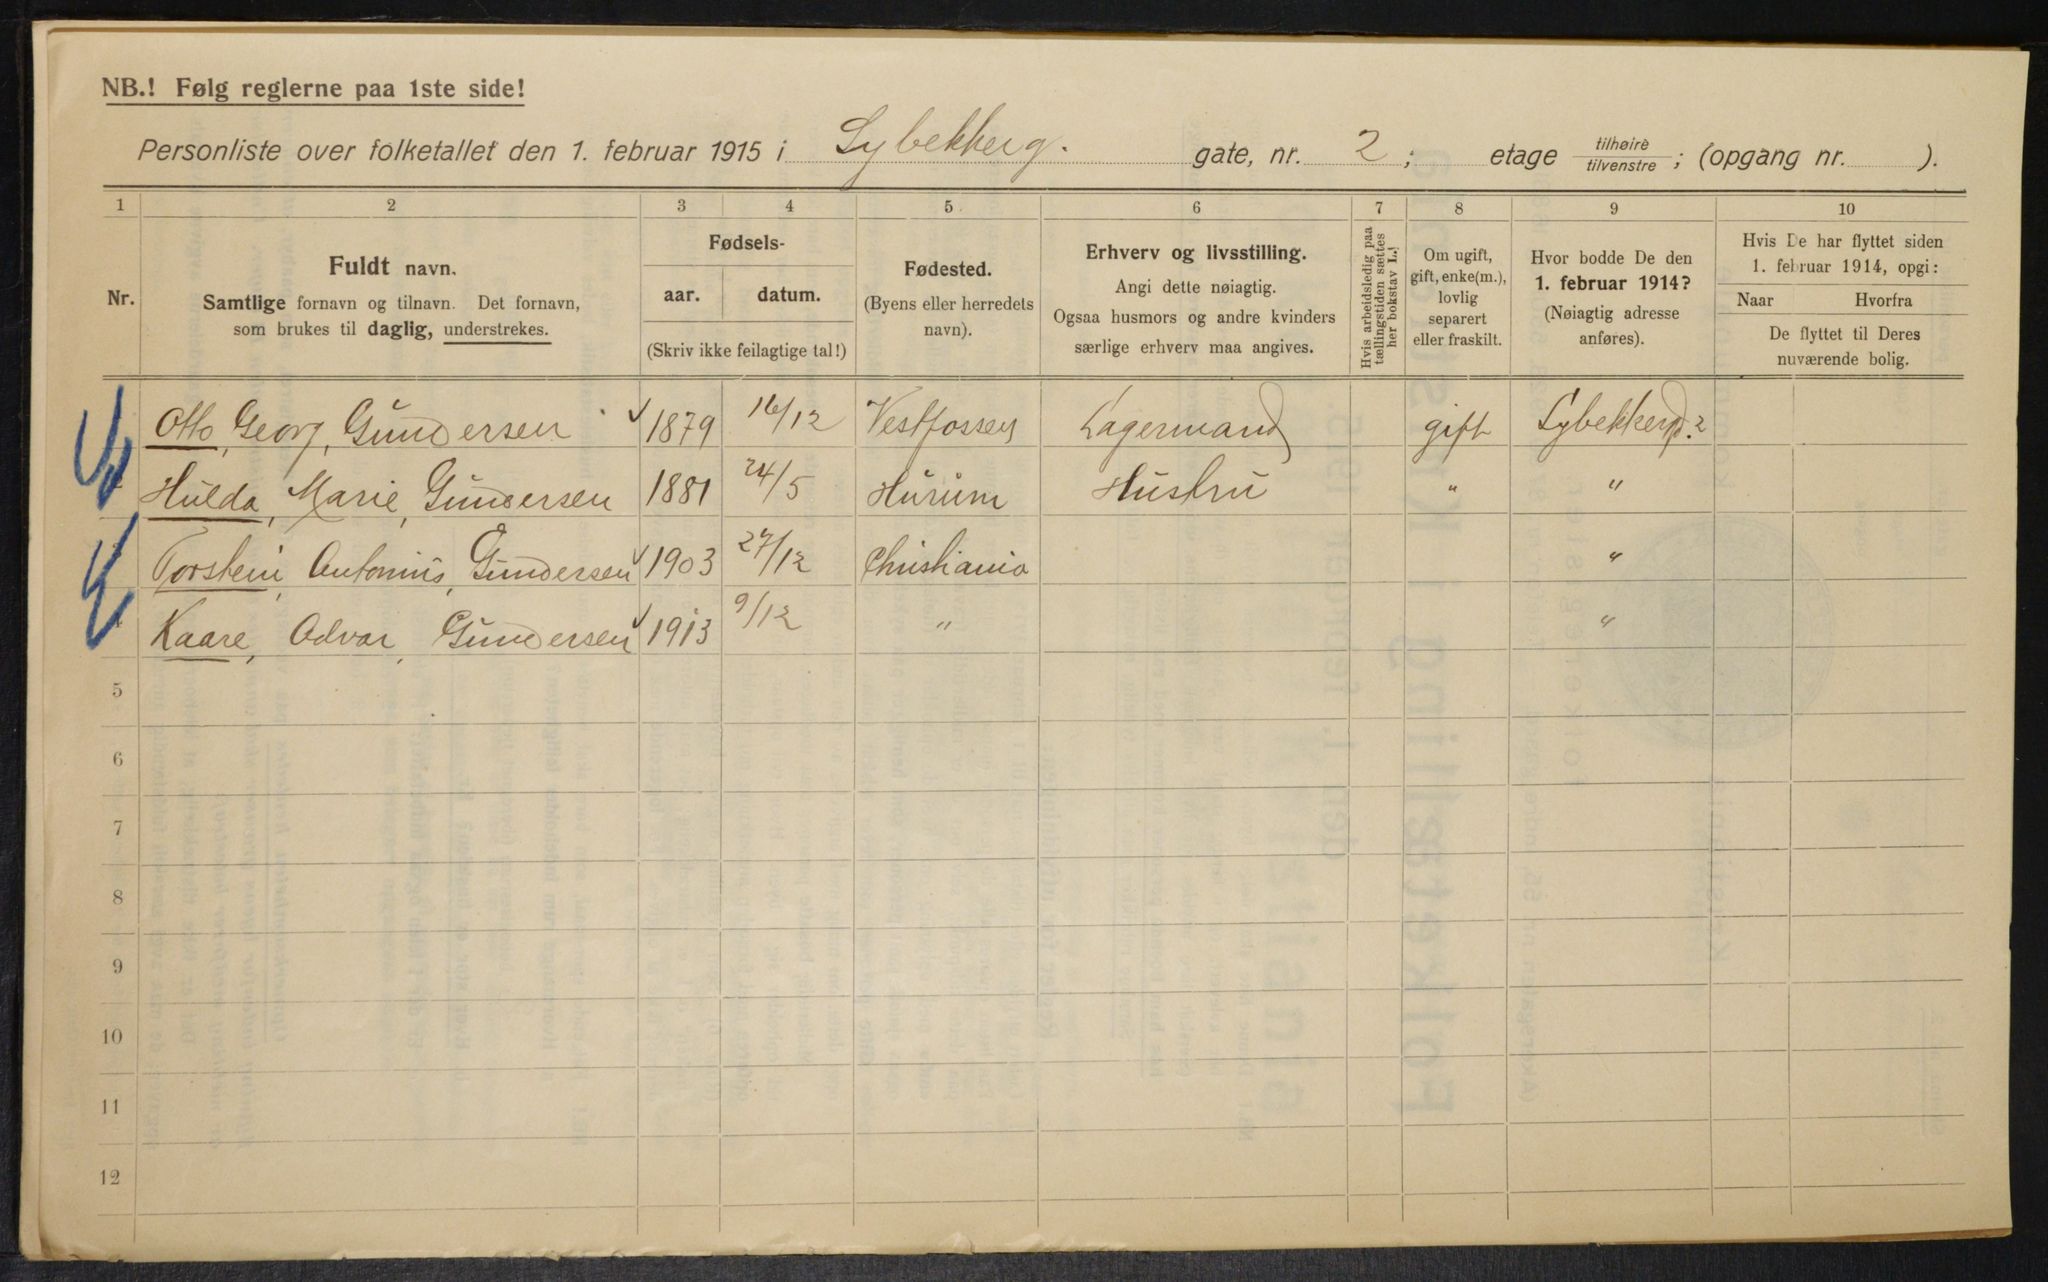 NB.! Følg reglerne paa 1ste side!
Personliste over folketallet den 1. februar 1915 i Lybekkerg. gate, nr. 2; etage tilhøire/tilvenstre; (opgang nr. ).
1 2 3 4 5 6 7 8 9 10
Nr.
Fuldt navn.
Samtlige fornavn og tilnavn. Det fornavn,
som brukes til daglig, understrekes.
Fødsels-
aar. datum.
(Skriv ikke feilagtige tal!)
Fødested.
(Byens eller herredets
navn).
Erhverv og livsstilling.
Angi dette nøiagtig.
Ogsaa husmors og andre kvinders
særlige erhverv maa angives.
Hvis arbeidsledig paa
tællingstiden sættes
her bokstav L.!
Om ugift,
gift, enke(m.),
lovlig
separert
eller fraskilt.
Hvor bodde De den
1. februar 1914?
(Nøiagtig adresse
anføres).
Hvis De har flyttet siden
1. februar 1914, opgi:
Naar Hvorfra
De flyttet til Deres
nuværende bolig.
Otto, Georg, Gundersen 1879 16/12 Vestfossen Lagermand gift Lybekkerg. 2
Hulda, Marie, Gundersen 1881 24/5 Hurum Hustru " "
Torstein, Antonius, Gundersen 1903 27/12 Christiania "
4 Kaare, Odvar, Gundersen 1913 9/12 " "
5
6
7
8
9
10
11
12